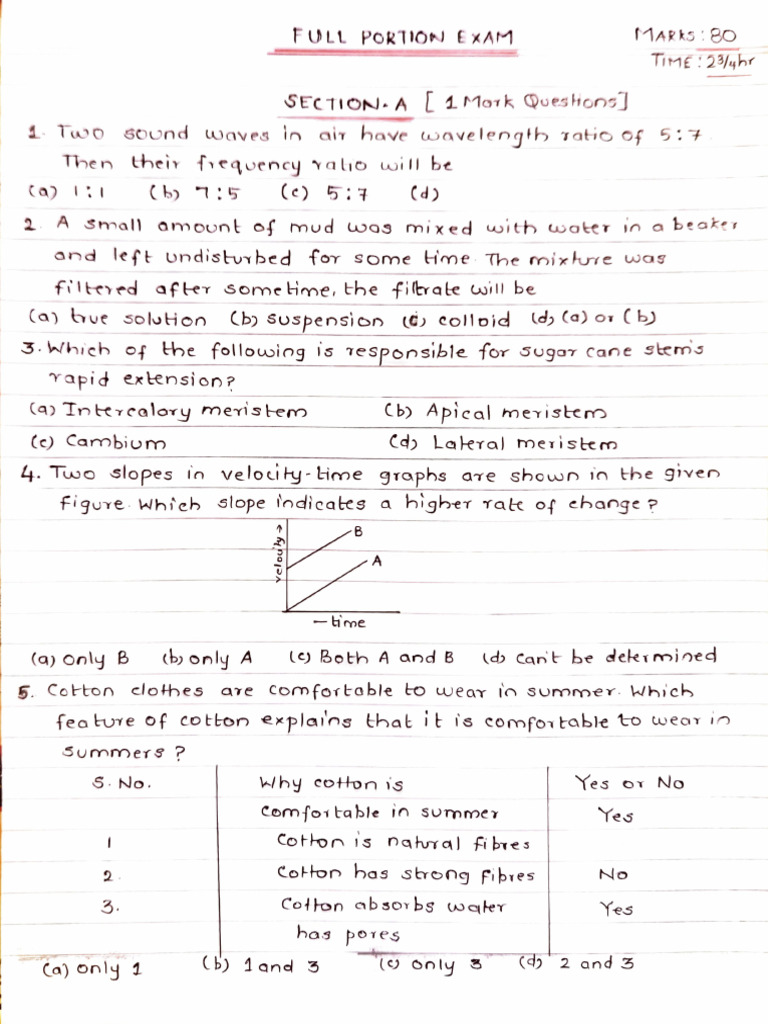 FULL PORTION EXAM MARKS: 80
TIME: 2 3/4 hr
SECTION-A [ 1 Mark Questions]
1. Two sound waves in air have wavelength ratio of 5:7
Then their frequency ratio will be
(a) 1:1 (b) 7:5 (c) 5:7 (d)
2. A small amount of mud was mixed with water in a beaker
and left undisturbed for some time. The mixture was
filtered after sometime, the filtrate will be
(a) true solution (b) suspension (c) colloid (d) (a) or (b)
3. Which of the following is responsible for sugar cane stem's
rapid extension?
(a) Intercalory meristem (b) Apical meristem
(c) Cambium (d) Lateral meristem
4. Two slopes in velocity-time graphs are shown in the given
figure. Which slope indicates a higher rate of change?
velocity →
B
A
— time
(a) only B (b) only A (c) Both A and B (d) can't be determined
5. Cotton clothes are comfortable to wear in summer. Which
feature of cotton explains that it is comfortable to wear in
summers?
S. No. Why cotton is Yes or No
comfortable in summer Yes
1 Cotton is natural fibres
2. Cotton has strong fibres No
3. Cotton absorbs water Yes
has pores
(a) only 1 (b) 1 and 3 (c) only 3 (d) 2 and 3